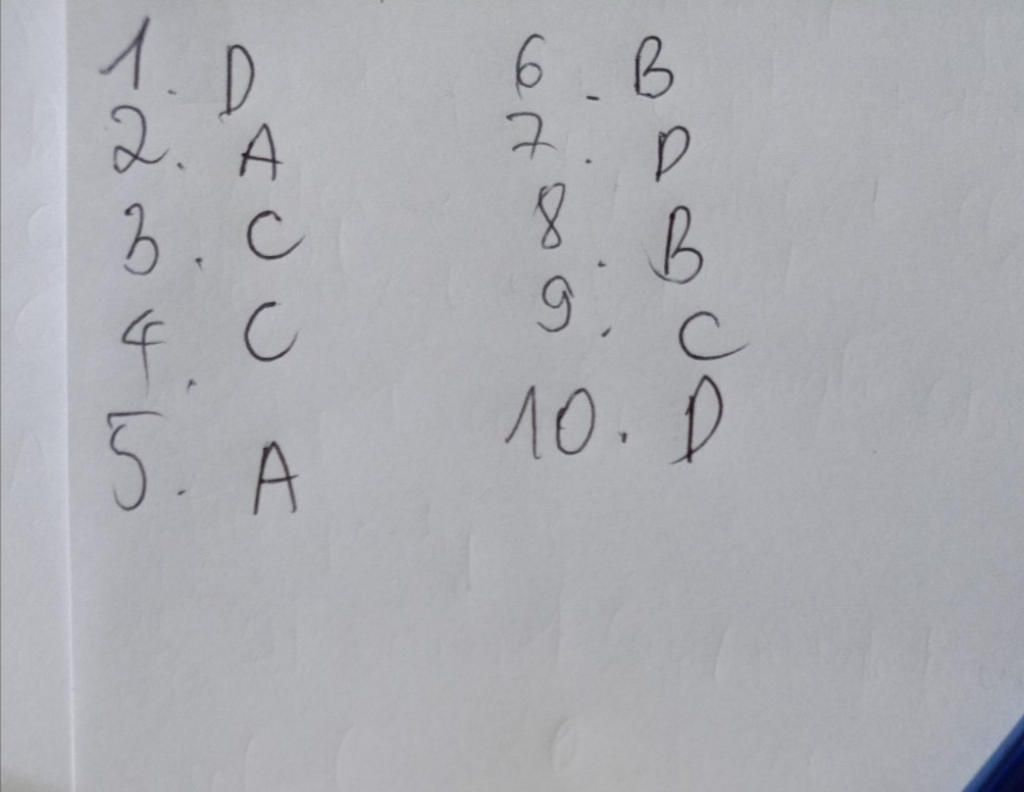 1. D
2. A
3. C
4. C
5. A
6. B
7. D
8. B
9. C
10. D